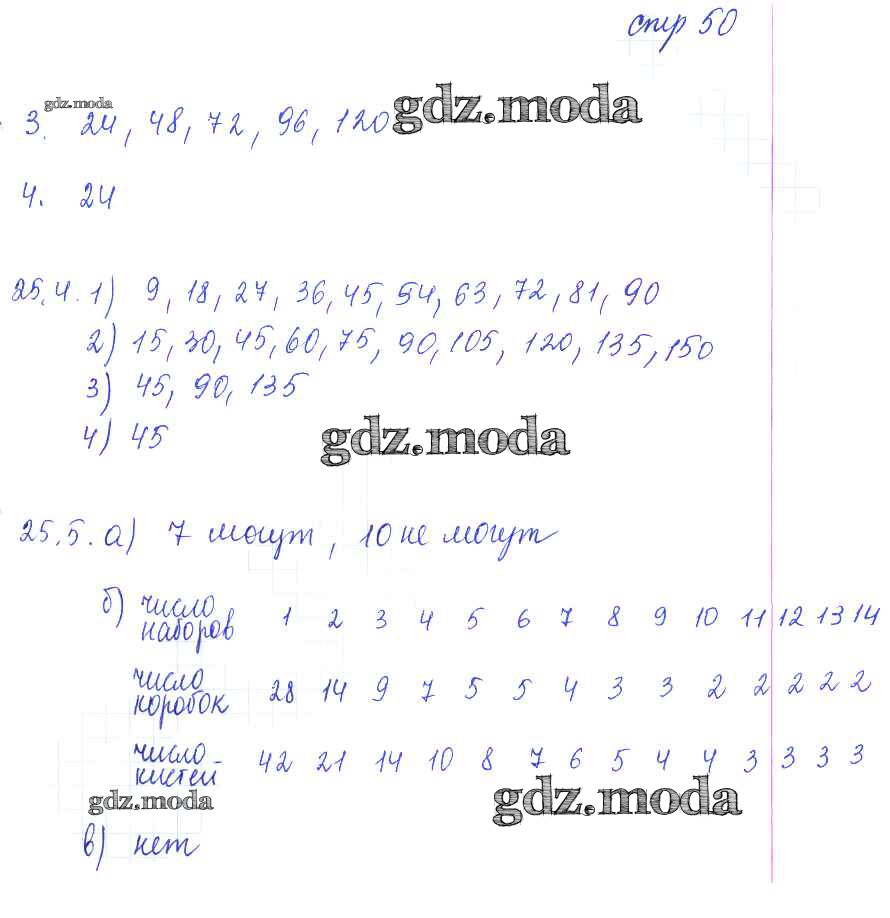 стр 50
gdz.moda
gdz.moda
3. 24, 48, 72, 96, 120
4. 24
25.4. 1) 9, 18, 27, 36, 45, 54, 63, 72, 81, 90
2) 15, 30, 45, 60, 75, 90, 105, 120, 135, 150
3) 45, 90, 135
4) 45
gdz.moda
25.5. а) 7 могут, 10 не могут
б) число наборов 1 2 3 4 5 6 7 8 9 10 11 12 13 14
число коробок 28 14 9 7 5 5 4 3 3 2 2 2 2 2
число кистей 42 21 14 10 8 7 6 5 4 4 3 3 3 3
gdz.moda
gdz.moda
в) нет